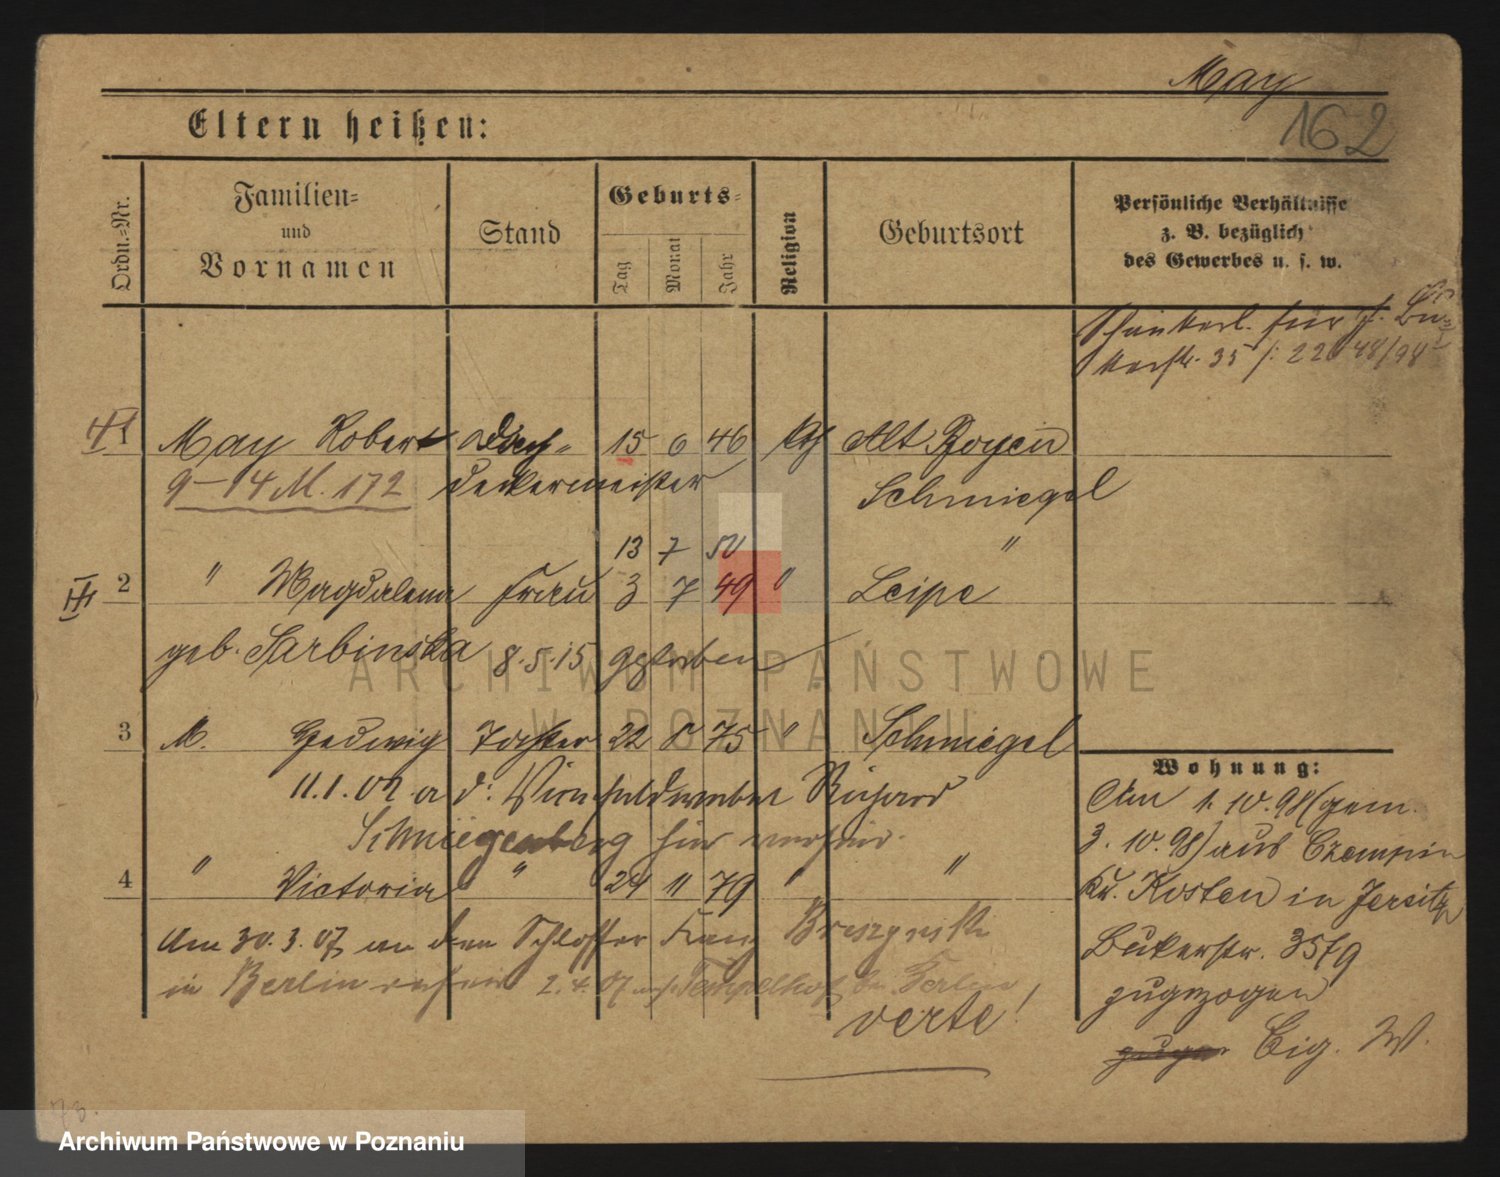 May
162
Eltern heißen:
Ordn.-Nr.
Familien-
und
Vornamen
Stand
Geburts-
Tag
Monat
Jahr
Religion
Geburtsort
Persönliche Verhältnisse
z. B. bezüglich
des Gewerbes u. s. w.
für
35 /: 22 48/98
1 May Robert Dach- 15 6 46 kth Alt Boyen
9-14 M. 172 deckermeister Schmiegel
13 7 50 "
2 " Magdalena Frau 3 7 49 " Leipe
geb. Sarbinska 8.5.15 gestorben
3 M. Hedwig Tochter 22 8 75 " Schmiegel
11.1.02 a d. Richard
Schmiegenberg hier verheir.
4 " Victoria " 24 11 79 " "
Am 30.3.07 an den Schlosser Franz
in Berlin verheir 2.4.07 Tempelhof bei Berlin
verte!
Wohnung:
Am 1. 10. 98 (gem.
3. 10. 98) aus Czempin
Kr. Kosten in Jersitz
Bukerstr. 35
zugezogen
Eig. W.
73.
ARCHIWUM PAŃSTWOWE
W POZNANIU
Archiwum Państwowe w Poznaniu